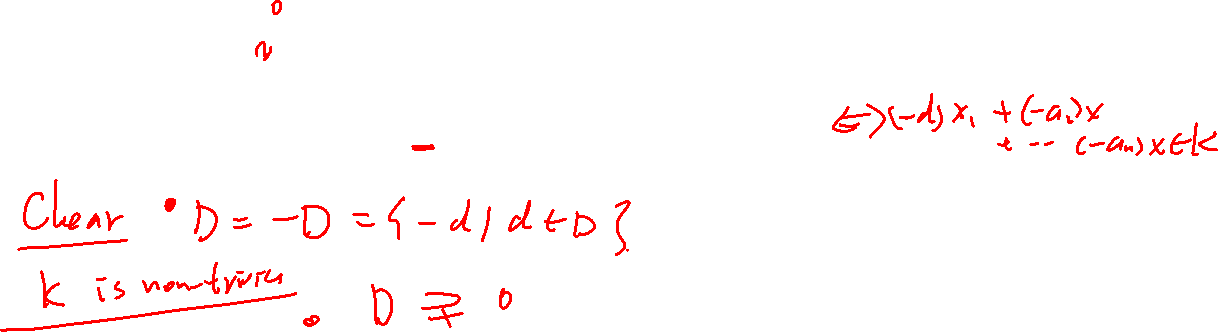 0
~
⟺ (-d) x₁ + (-a₂)x
+ -- (-aₙ) x ∈ K
-
Clear • D = -D = { -d | d ∈ D }
K is non-trivial
• D ⊋ 0